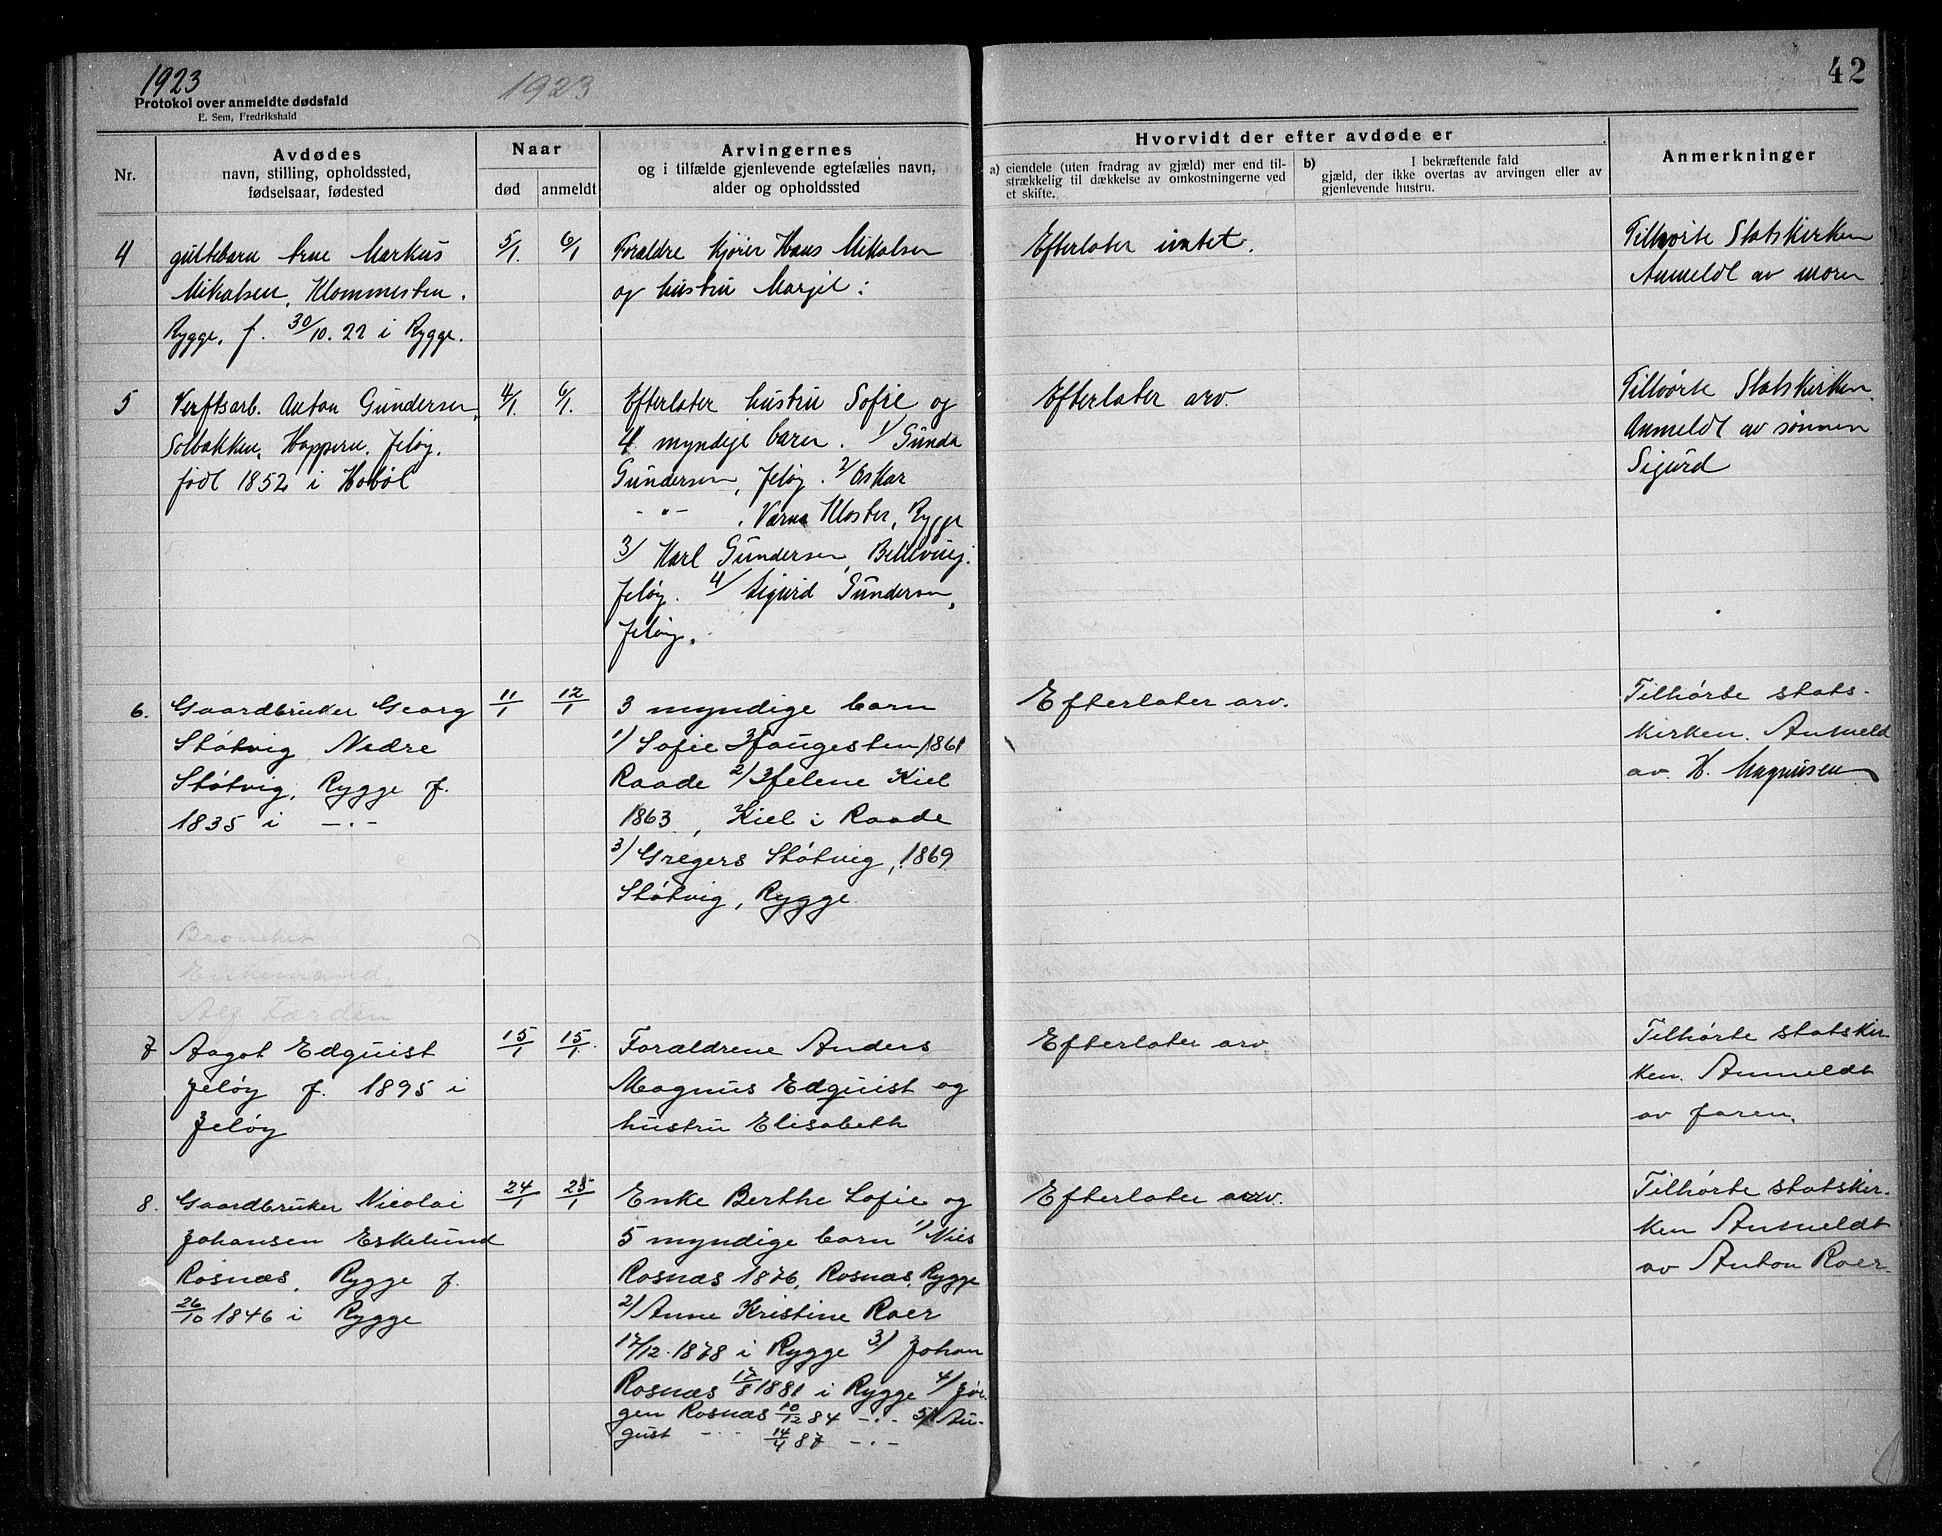 1923
1923
42
Protokol over anmeldte dødsfald
E. Sem, Fredrikshald
Nr.
Avdødes
navn, stilling, opholdssted,
fødselsaar, fødested
Naar
død
anmeldt
Arvingernes
og i tilfælde gjenlevende egtefælles navn,
alder og opholdssted
Hvorvidt der efter avdøde er
a) eiendele (uten fradrag av gjæld) mer end til-
strækkelig til dækkelse av omkostningerne ved
et skifte.
b) I bekræftende fald
gjæld, der ikke overtas av arvingen eller av
gjenlevende hustru.
Anmerkninger
4
guttebarn Arne Markus
Mikalsen, Klommesten.
Rygge, f. 30/10.22 i Rygge.
5/1.
6/1
Forældre kjører Hans Mikalsen
og hustru Margit:
Efterlater intet.
Tilhørte Statskirken
Anmeldt av moren
5
Verftsarb. Anton Gundersen,
Solbakken, Happern, Jeløy.
født 1852 i Hobøl
4/1.
6/1.
Efterlater hustru Sofie og
4 myndige barn. 1/ Gunda
Gundersen, Jeløy. 2/ Oskar
- " - , Værne Kloster, Rygge
3/ Karl Gundersen, Bellevuej.
Jeløy. 4/ Sigurd Gundersen,
Jeløy.
Efterlater arv.
Tilhørte Statskirken.
Anmeldt av sønnen
Sigurd
6.
Gaardbruker Georg
Støtvig, Nedre
Støtvig, Rygge f.
1835 i -.-
11/1
12/1
3 myndige barn
1/ Sofie Haugesten, 1861
Raade 2/ Helene Kiel
1863, Kiel i Raade
3/ Gregers Støtvig, 1869
Støtvig, Rygge
Efterlater arv.
Tilhørte stats-
kirken. Anmeld
av. H. Magnusen
Enkemand.
Alf Færden
7
Aagot Edquist
Jeløy f. 1895 i
Jeløy
15/1
15/1.
Forældrene Anders
Magnus Edquist og
hustru Elisabeth
Efterlater arv.
Tilhørte statskir-
ken. Anmeldt
av faren.
8.
Gaardbruker Nicolai
Johansen Eskelund
Rosnæs, Rygge f.
26/10 1846 i Rygge
24/1
25/1
Enke Berthe Sofie og
5 myndige barn 1/ Nils
Rosnæs 1876, Rosnæs, Rygge
2/ Anne Kristine Roer
17/12. 1878 i Rygge 3/ Johan
Rosnæs 17/8 1881 i Rygge 4/ Jør-
gen Rosnæs 10/12 84 -.- 5/ Au-
gust - - - 14/4 87 -.-
Efterlater arv.
Tilhørte statskir-
ken Anmeldt
av Anton Roer.